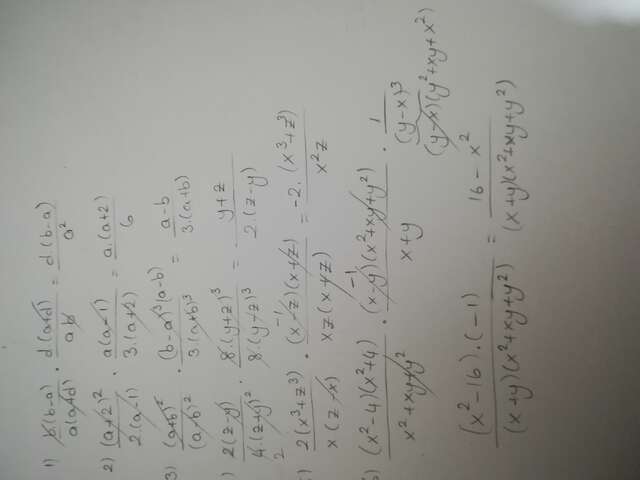 1) b(b-a)/a(a+d) · d·(a+d)/ab = d·(b-a)/a²
2) (a+2)²/2(a-1) · a(a-1)/3·(a+2) = a·(a+2)/6
3) (a+b)²/(a-b)² · (b-a)³(a-b)/3·(a+b)³ = a-b/3·(a+b)
) 2(z-y)/4·(z+y)² · 8·(y+z)³/8·(y-z)³ = y+z/2·(z-y)
2
) 2(x³+z³)/x(z-x) · (x-z)(x+z)/xz(x+z) = -2·(x³+z³)/x²z
-1
) (x²-4)(x²+4)/x²+xy+y² · (x-y)(x²+xy+y²)/x+y · 1/(y-x)³
-1
(y-x)(y²+xy+x²)
(x²-16)·(-1)/(x+y)(x²+xy+y²) = 16-x²/(x+y)(x²+xy+y²)